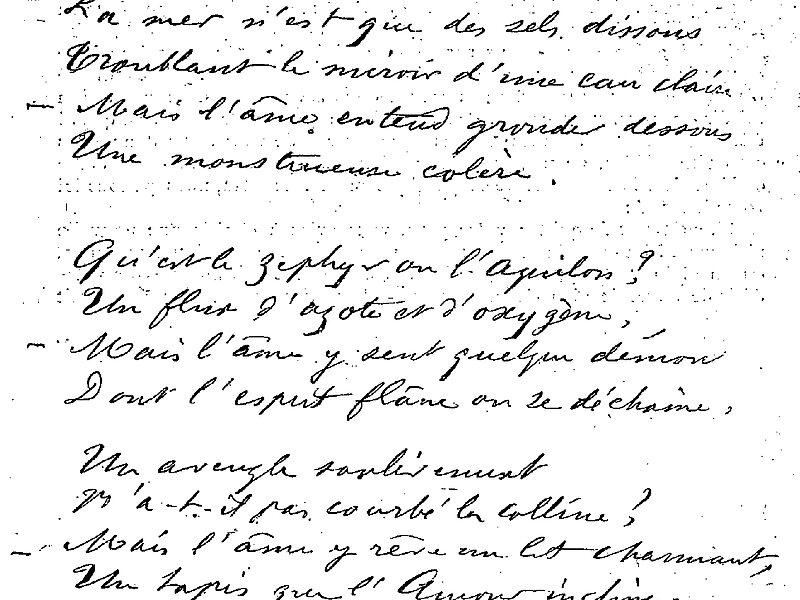 La mer n'est que des sels dissous
Troublant le miroir d'une eau claire
- Mais l'âme entend gronder dessous
Une monstrueuse colère.
Qu'est le zéphyr ou l'Aquilon ?
Un flux d'azote et d'oxygène,
- Mais l'âme y sent quelque démon
Dont l'esprit flâne ou se déchaîne,
Un aveugle soulèvement
N'a-t-il pas courbé la colline ?
- Mais l'âme y rêve un lit charmant,
Un tapis que l'Amour incline.